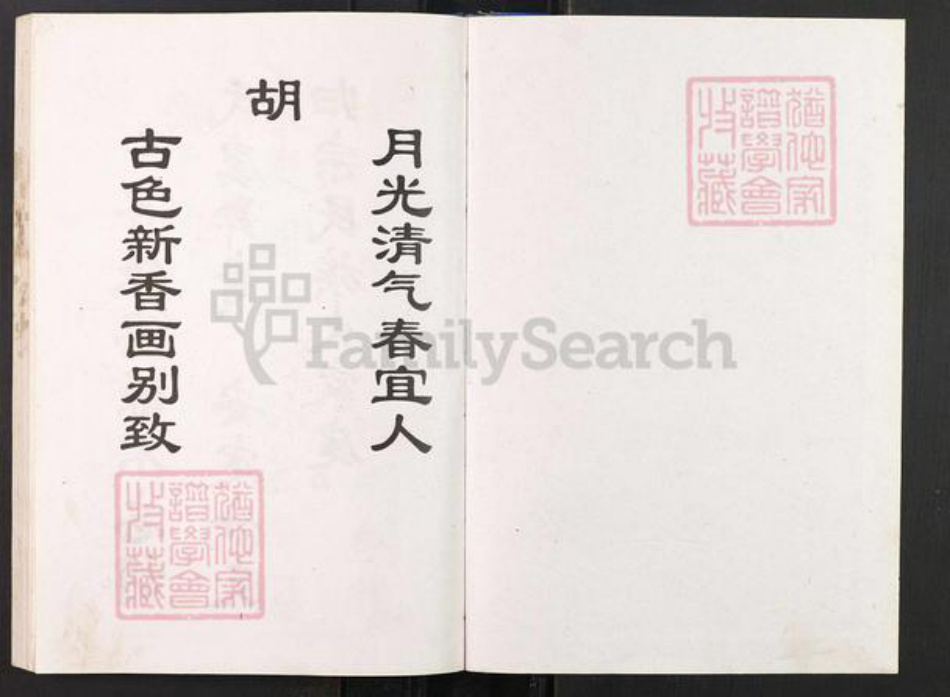 胡
月光清气春宜人
古色新香画别致
FamilySearch
譜學會
收藏
譜學會
收藏